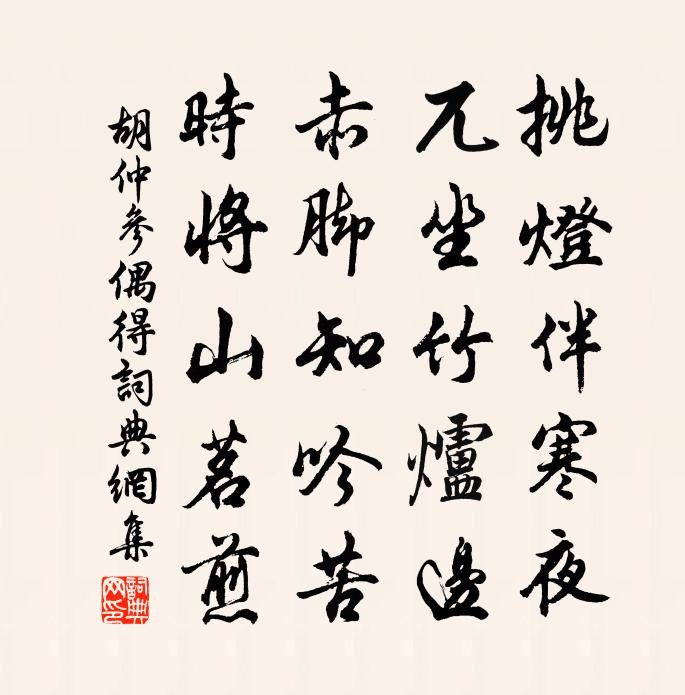 挑燈伴寒夜
兀坐竹爐邊
赤脚知吟苦
時將山茗煎
胡仲參偶得詞典網集
詞典網印